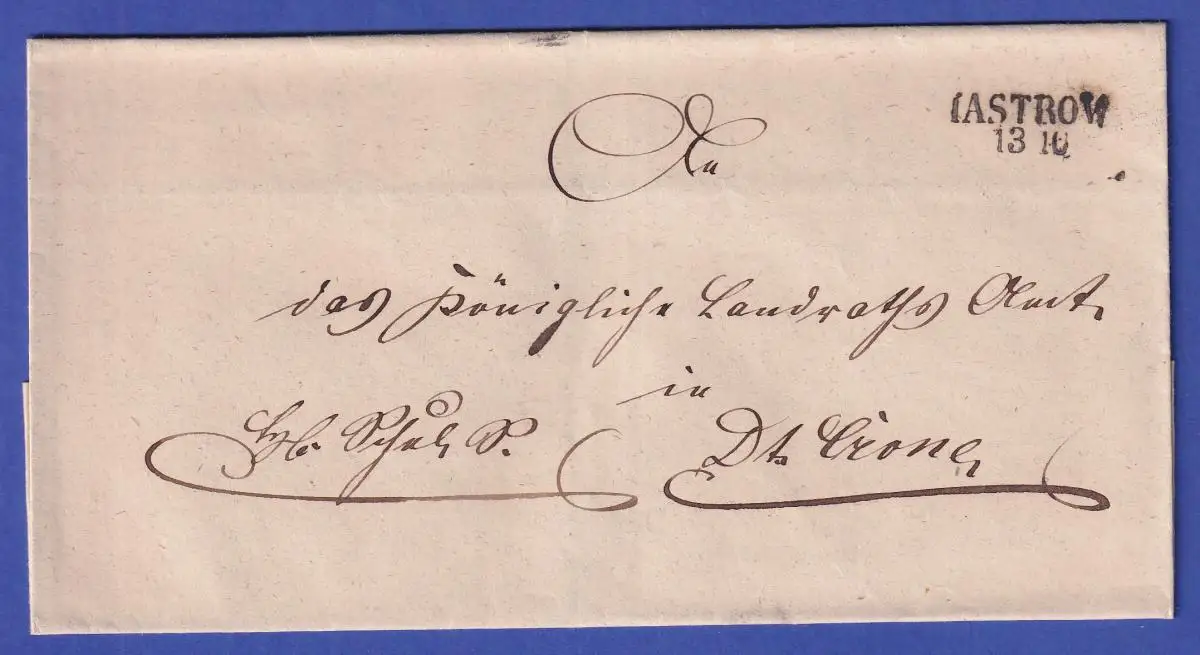 IASTROW
13 10
An
das Königliche Landraths Amt
in
Schul S.
Dt. Crone